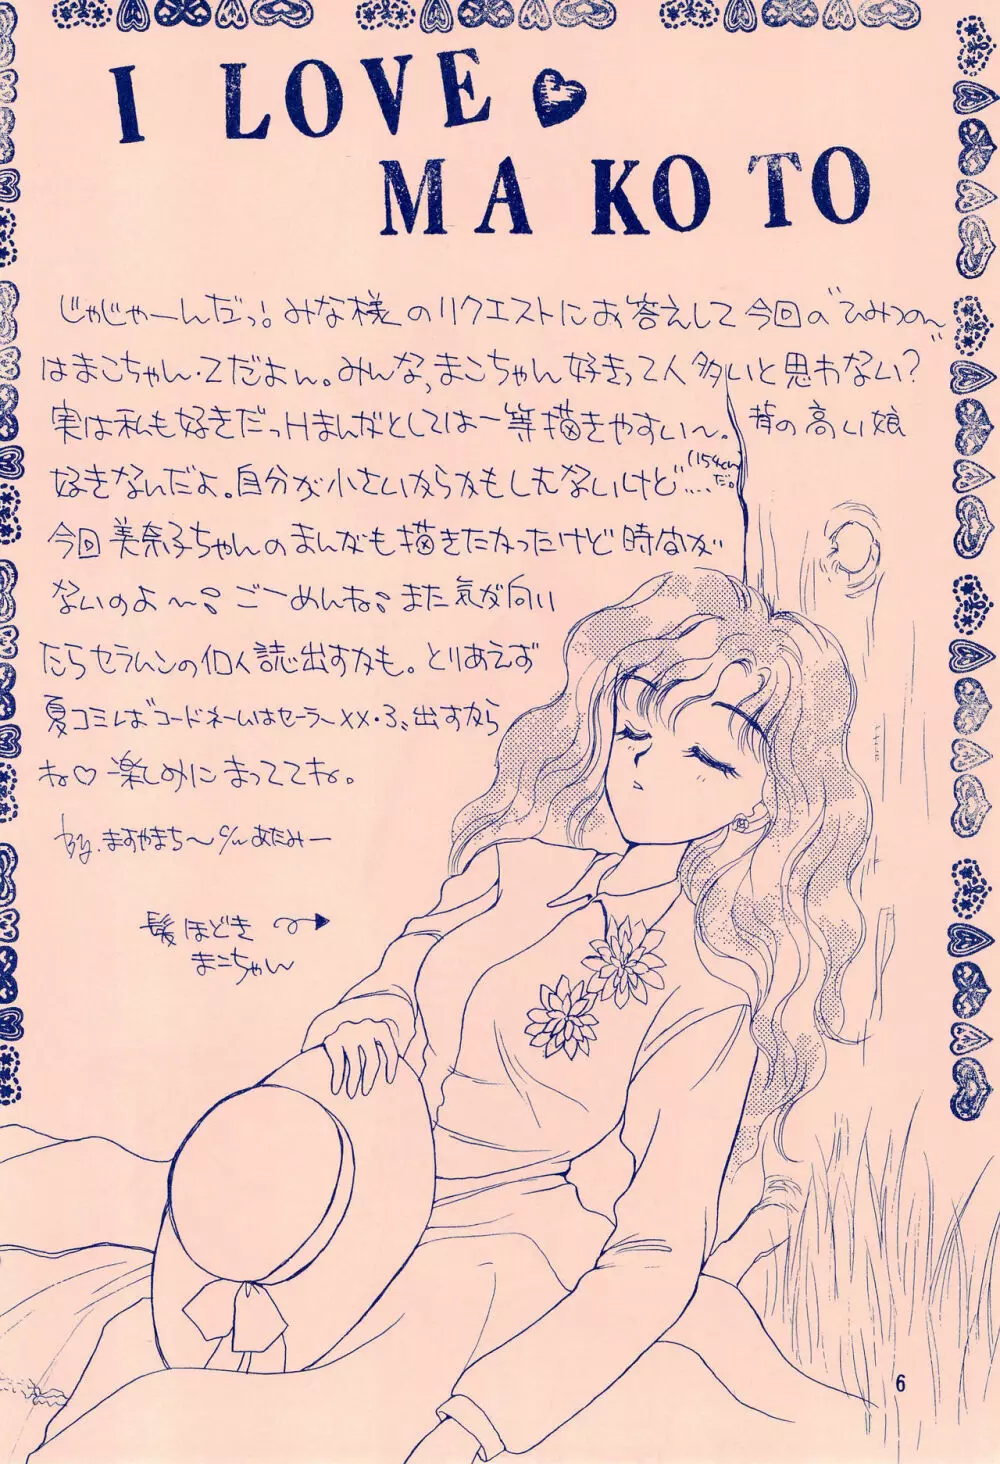 I LOVE
MA KO TO
じゃじゃーんだっ!みな様のリクエストにお答えして今回の"ひみつの〜"
はまこちゃん・Zだよん。みんな、まこちゃん好きって人多いと思わない?
実は私も好きだっHまんがとしては一等描きやすい〜。背の高い娘
好きなんだよ。自分が小さいからかもしんないけど……(154cmだ。)
今回美奈子ちゃんのまんがも描きたかったけど時間が
ないのよ〜。ごーめんね。また気が向い
たらセラムンの個人誌出すかも。とりあえず
夏コミれば"コードネームはセーラーXX・3、出すから
ね♡楽しみにまっててね。
by.ますやまち〜
髪ほどき
まこちゃん
6